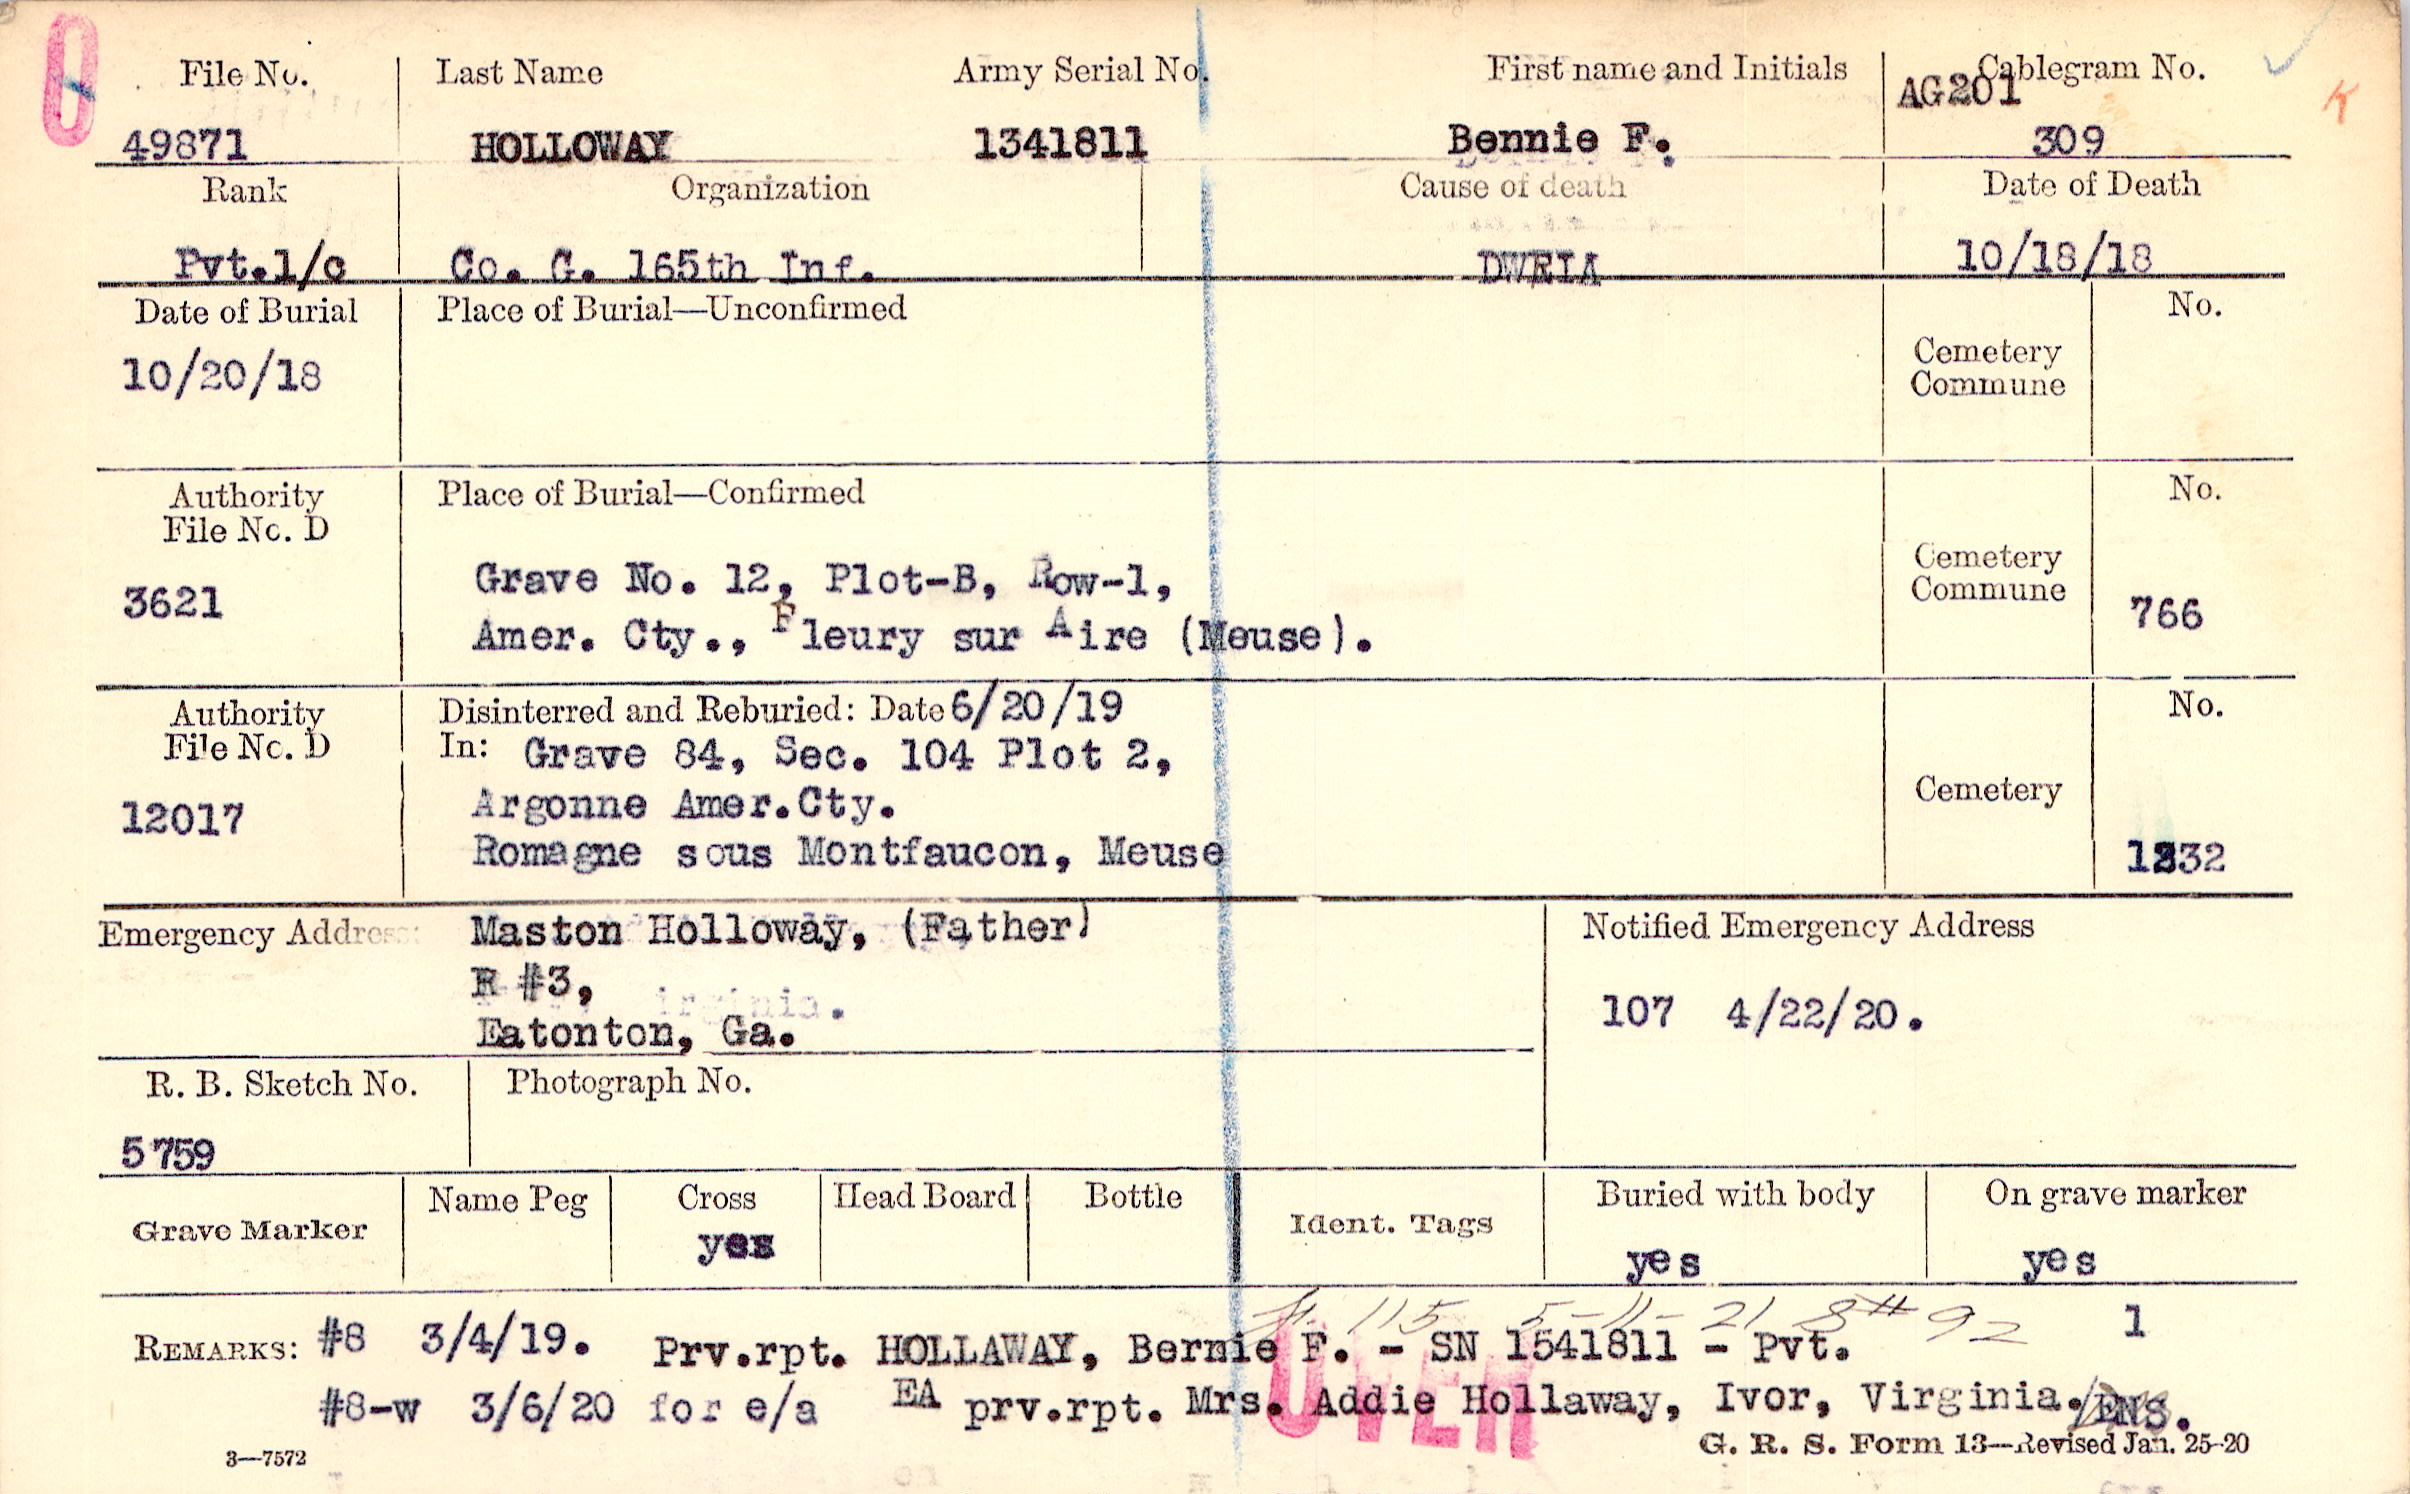 File No. Last Name Army Serial No. First name and Initials Cablegram No.
AG201
49871 HOLLOWAY 1341811 Bennie F. 309
Rank Organization Cause of death Date of Death
Pvt.1/c Co. G. 165th Inf. DWRIA 10/18/18
Date of Burial Place of Burial—Unconfirmed No.
10/20/18
Cemetery
Commune
Authority Place of Burial—Confirmed No.
File No. D
3621 Grave No. 12, Plot-B, Row-1,
Amer. Cty., Fleury sur Aire (Meuse).
Cemetery
Commune
766
Authority Disinterred and Reburied: Date 6/20/19 No.
File No. D In: Grave 84, Sec. 104 Plot 2,
12017 Argonne Amer.Cty.
Romagne sous Montfaucon, Meuse
Cemetery
1232
Emergency Address: Maston Holloway, (Father)
R #3,
Eatonton, Ga.
Notified Emergency Address
107 4/22/20.
R. B. Sketch No. Photograph No.
5759
Grave Marker Name Peg Cross Head Board Bottle Ident. Tags Buried with body On grave marker
yes yes yes
115 5-11-21 8# 92 1
REMARKS: #8 3/4/19. Prv.rpt. HOLLAWAY, Bernie F. - SN 1541811 - Pvt.
#8-w 3/6/20 for e/a EA prv.rpt. Mrs. Addie Hollaway, Ivor, Virginia./ENS.
OVER
3—7572 G. R. S. Form 13—Revised Jan. 25-20